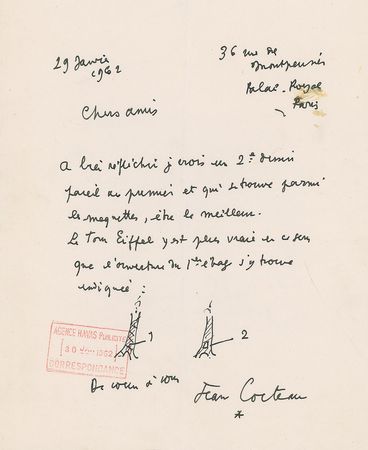 29 Janvier
1962
36 rue de
Montpensier
Palais-Royal
Paris
Chers amis
A bien réfléchir je crois un 2e dessin
pareil au premier et qui se trouve parmi
les maquettes, être le meilleur.
La Tour Eiffel y est plus vraie en ce sens
que l'ouverture du 1er étage s'y trouve
indiquée :
1
2
AGENCE HAVAS PUBLICITÉ
30 1962
CORRESPONDANCE
De cœur à vous
Jean Cocteau
*